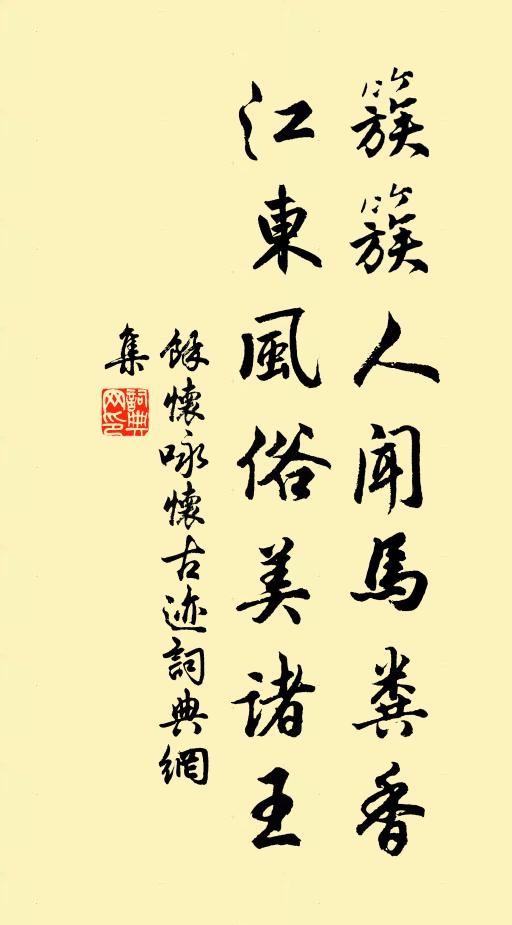 簇簇人闻馬糞香
江東風俗美諸王
餘懷咏懷古迹詞典網
集
詞典
网印